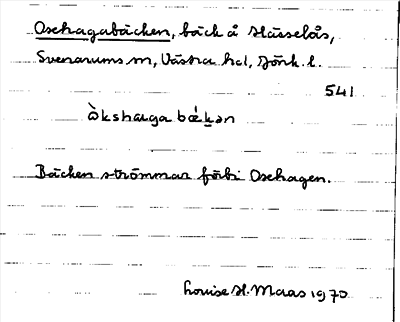 Oxehagabäcken, bäck å Hässelås,
Svenarums sn, Västra hd, Jönk. l.
541
ò̀kshaga bækən
Bäcken strömmar förbi Oxehagen.
Louise H. Maas 1970